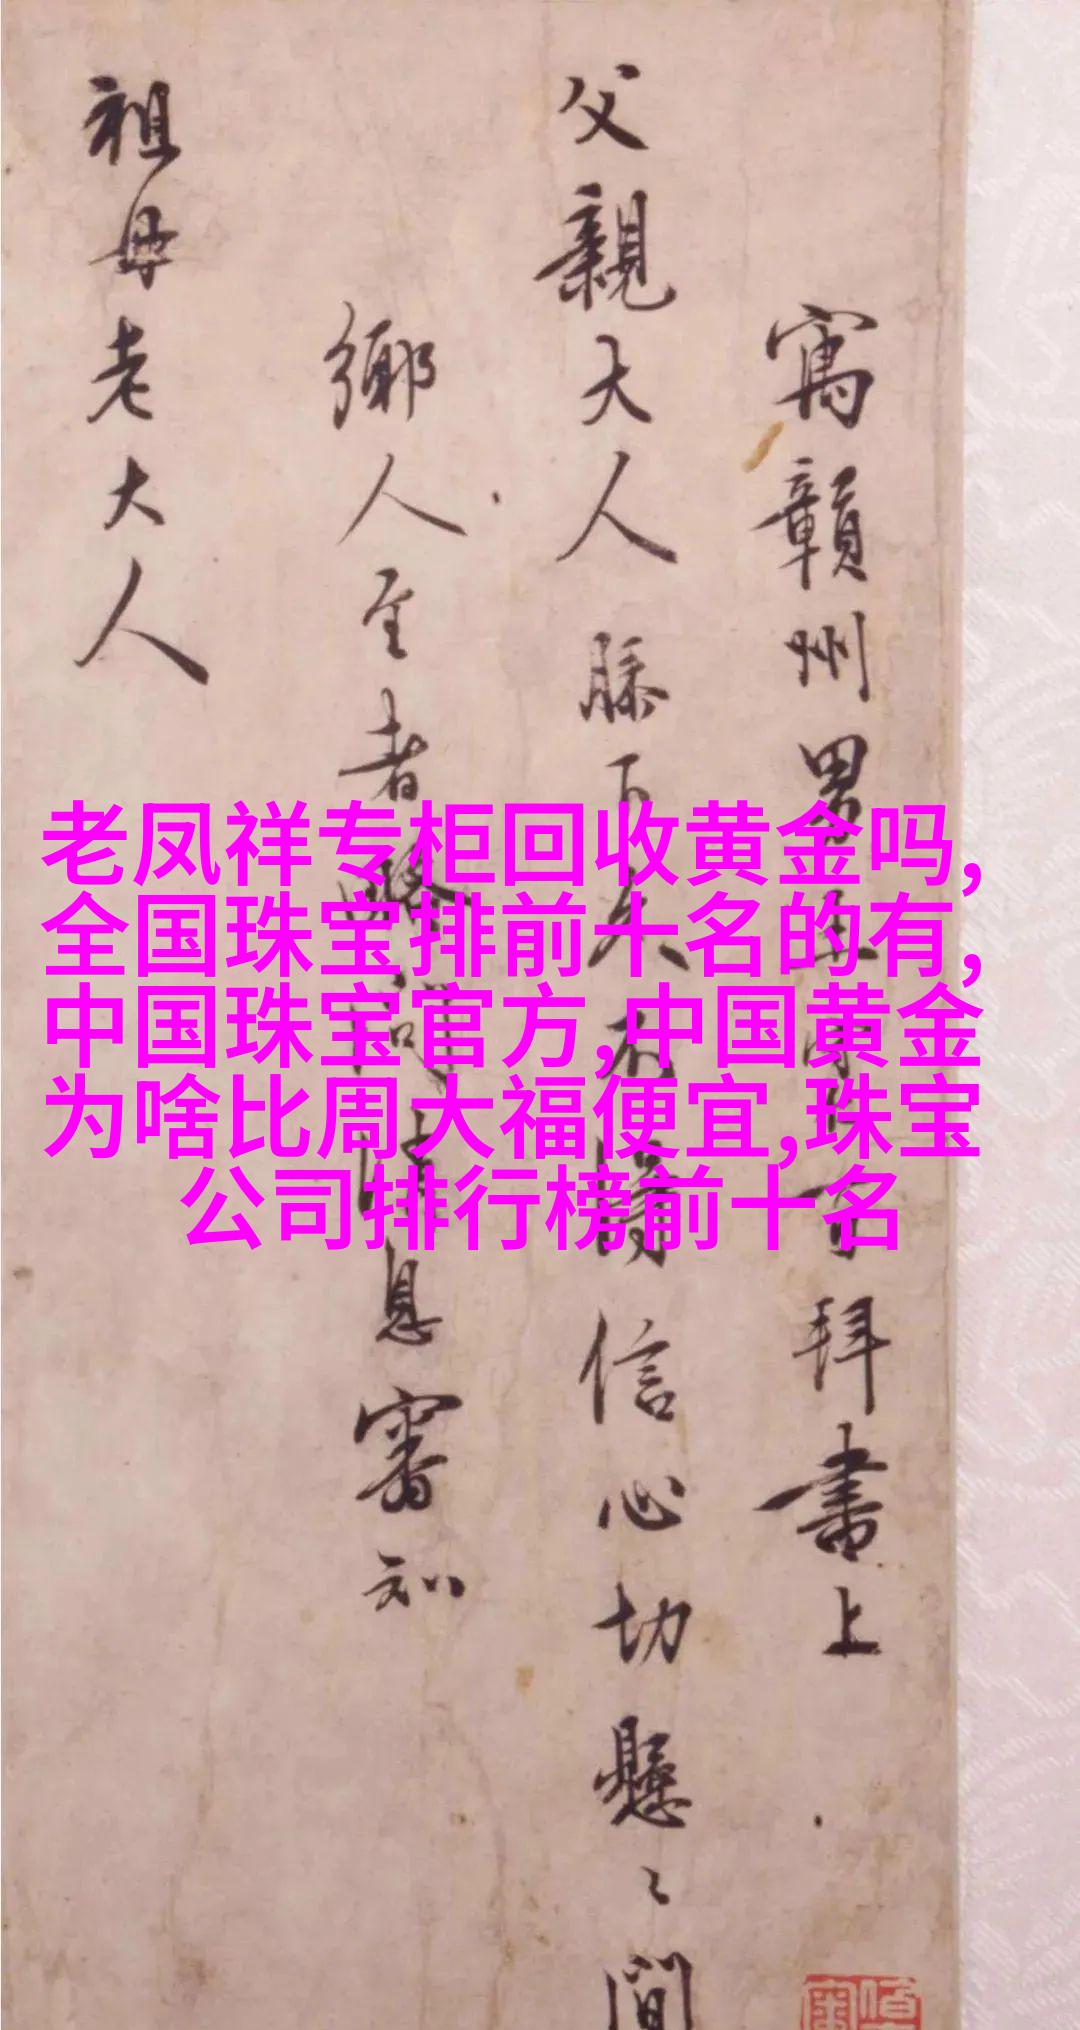 寓贛州男王守仁百拜書上
父親大人膝下久不得信心切懸〻間
鄉人至者略詢消息審知
祖母老大人
老凤祥专柜回收黄金吗,
全国珠宝排前十名的有,
中国珠宝官方,中国黄金
为啥比周大福便宜,珠宝
公司排行榜前十名